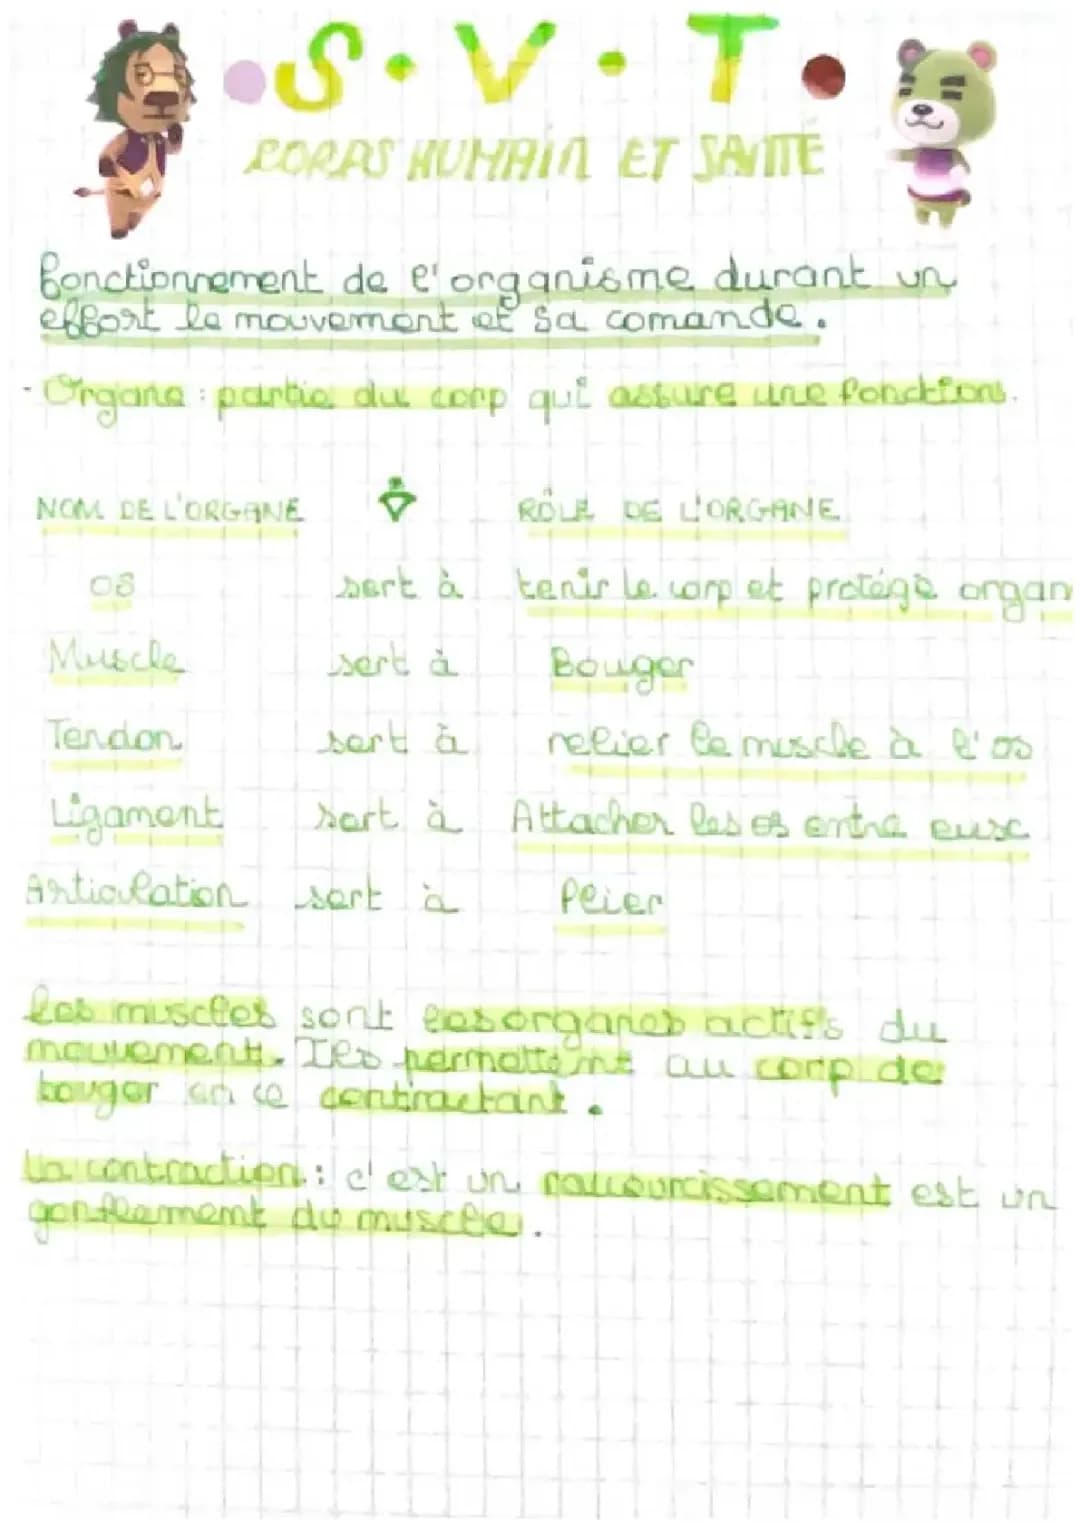 S.V.T.
CORPS HUMAIN ET SANTÉ
Fonctionnement de l'organisme durant un
effort le mouvement et sa comande.
- Organe : partie du corp qui assure une fonction.
NOM DE L'ORGANE RÔLE DE L'ORGANE
os sert à tenir le corp et protégè organ
Muscle sert à Bouger
Tendon sert à relier le muscle à l'os
Ligament sert à Attacher les os entre eux
Articulation sert à Plier
Les muscles sont les organes actifs du
mouvement. Ils permettent au corp de
bouger en ce contractant.
La contraction : c'est un raccourcissement est un
gonflement du muscle.